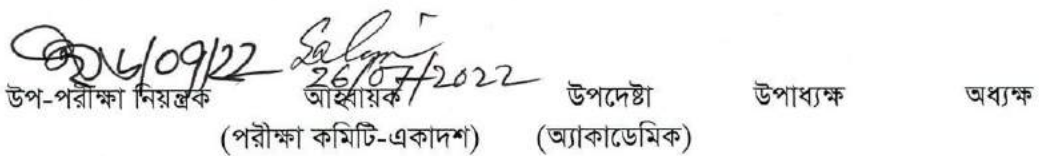 ২৬/০৭/২২ 26/07/2022
উপ-পরীক্ষা নিয়ন্ত্রক আহ্বায়ক উপদেষ্টা উপাধ্যক্ষ অধ্যক্ষ
(পরীক্ষা কমিটি-একাদশ) (অ্যাকাডেমিক)